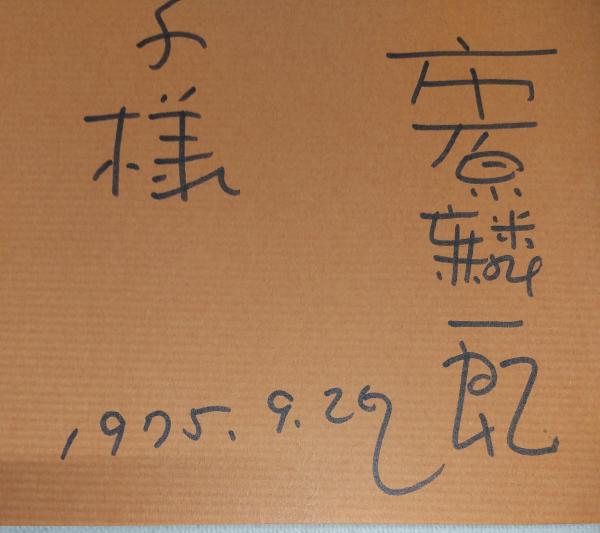 市原麟一郎
子様
1975.9.29